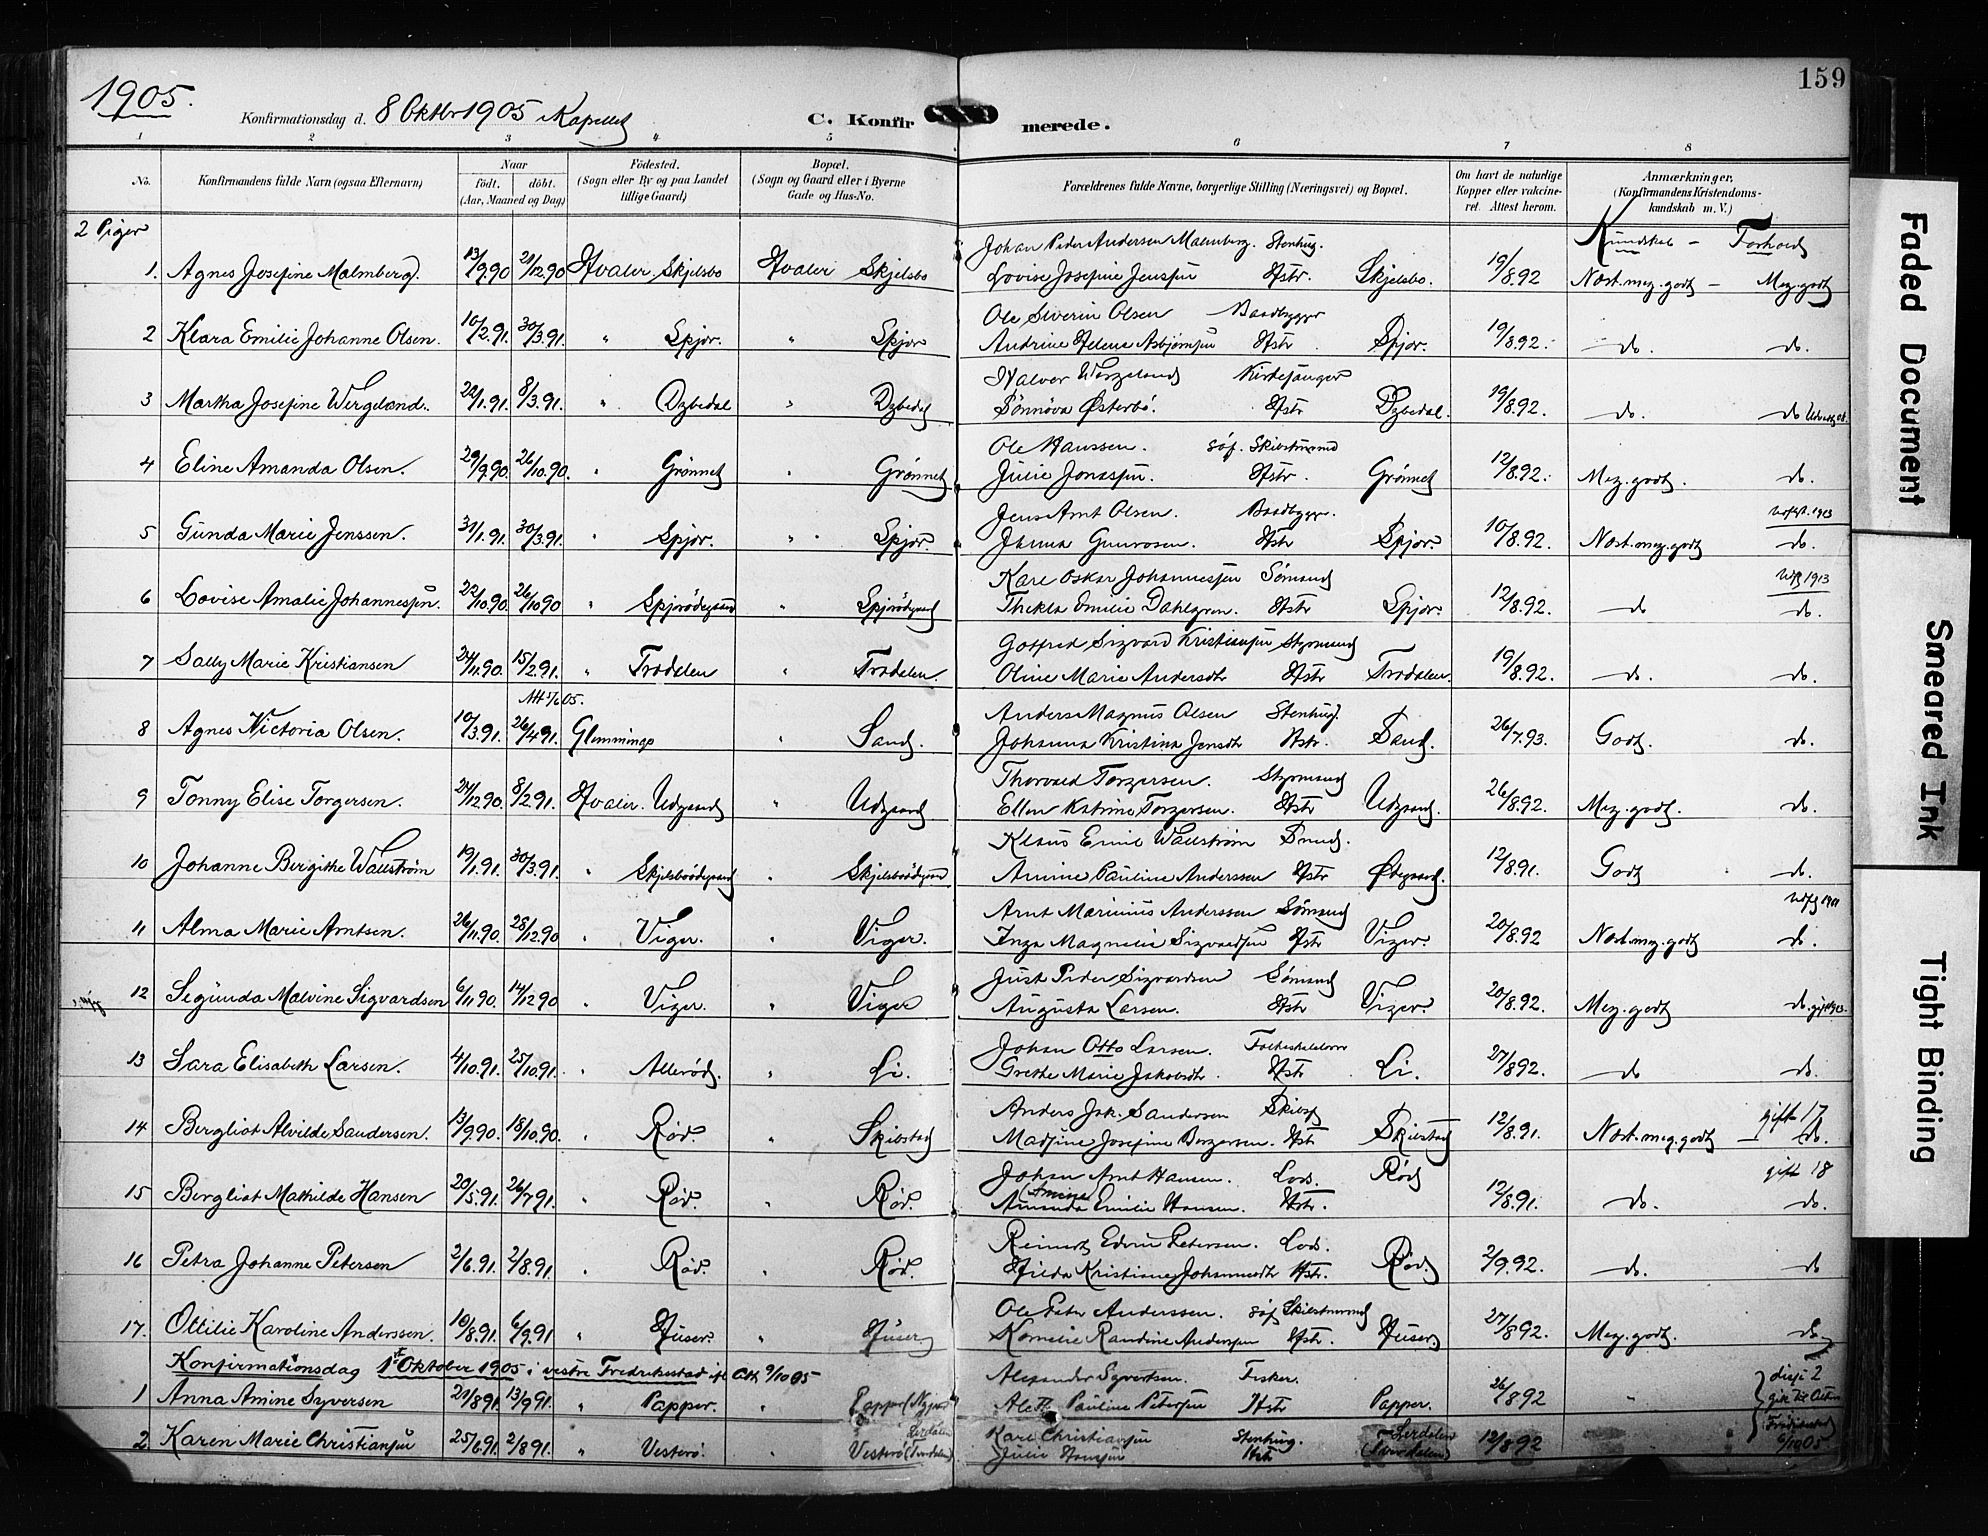 1905.
Konfirmationsdag d. 8 Oktbr 1905 Kapellet
C. Konfirmerede.
159
1 2 3 4 5 6 7 8
No.
Konfirmandens fulde Navn (ogsaa Efternavn)
Naar
født. døbt.
(Aar, Maaned og Dag)
Fødested.
(Sogn eller By og paa Landet
tillige Gaard)
Bopæl.
(Sogn og Gaard eller i Byerne
Gade og Hus-No.
Forældrenes fulde Navne, borgerlige Stilling (Næringsvei) og Bopæl.
Om havt de naturlige
Kopper eller vakcine-
ret. Attest herom.
Anmærkninger.
(Konfirmandens Kristendoms-
kundskab m. V.)
2 Piger
Kundskab - Forhold
Johan Peder Andersen Malmberg. Stenhug.
1. Agnes Josefine Malmberg. 13/9.90 21/12.90 Hvaler. Skjelsbo Hvaler Skjelsbo Lovise Josefine Jensen Hstr. Skjelsbo. 19/8.92 Næst.meg.godt - Meg.godt
Ole Siverin Olsen Baadbygger
2 Klara Emilie Johanne Olsen. 10/2.91. 30/3.91. " Spjær. " Spjær Andrine Helene Asbjørnsen Hstr. Spjær. 19/8.92. do. do.
Halvor Wergeland Kirkesanger
3 Martha Josefine Wergeland. 22/1.91. 8/3.91. " Dybedal " Dybedal Sønnøva Østerbö. Hstr Dybedal. 19/8.92. do. do
Ole Hanssen. søf. Skibstmmd
4 Eline Amanda Olsen. 29/9.90. 26/10.90. " Grønnet " Grønnet Julie Jonassen. Hstr. Grønnet 12/8.92. Meg.godt. do.
Jens Arnt Olsen. Baadbygger. 1913
5 Gunda Marie Jenssen. 31/1.91. 30/3.91. " Spjær. " Spjær. Janna Gunrosen. Hstr Spjær. 10/8.92. Næst.meg.godt do.
Karl Oskar Johannessen Sømand 1913
6 Lovise Amalie Johannessen. 22/10.90. 26/10.90 " Spjærødegaard " Spjærödegaard Thekla Emilie Dahlgren. Hstr Spjær. 12/8.92. do do.
Gotfred Sigvard Kristiansen Styrmand
7 Sally Marie Kristiansen 24/11.90. 15/2.91. " Trødalen " Trødalen. Oline Marie Andersdtr Hstr Trødalen. 19/8.92. do. do.
Anders Magnus Olsen Stenhug.
8 Agnes Victoria Olsen. 10/3.91. 26/4.91. Glemminge " Sand. Johanna Kristina Jensdtr Hstr. Sand. 26/7.93. Godt. do.
Thorvald Torgersen. Styrmand
9 Tonny Elise Torgersen. 24/12.90. 8/2.91. Hvaler. Udgaard " Udgaard Ellen Katrine Torgersen. Hstr Udgaard. 26/8.92. Meg.godt. do.
Klaus Emil Wallstrøm Smed.
10 Johanne Bergithe Wallstrøm 19/1.91. 30/3.91. " Skjelsboødegaard " Skjelsboødegaard Amine Pauline Anderssen Hstr Ødegaard. 12/8.91. Godt do.
Arnt Marinius Anderssen Sømand
11 Alma Marie Arntsen. 26/11.90. 28/12.90 " Viger. " Viger. Inga Magnelie Sigvardsen Hstr Viger. 20/8.92 Næst.meg.godt do.
Just Peder Sigvardsen Sømand
12 Segunda Malvine Sigvardsen 6/11.90. 14/12.90 " Viger. " Viger Augusta Larsen. Hstr Viger. 20/8.92. Meg.godt do.
Johan Otto Larsen. Folkeskolelærer
13 Sara Elisabeth Larsen. 4/10.91. 25/10.91. " Allerød. " Li. Grethe Marie Jakobsdtr. Hstr. Li. 27/8.92. do do.
Anders Joh. Sandersen Skibsf gift 17
14 Bergliot Alvilde Sandersen. 13/9.90. 18/10.90. " Rød. " Skibstad Madsine Josefine Borgersen. Hstr Skibstad 12/8.91. Næst.meg.godt do.
Johan Arnt Hansen. Lods. Rød gift 18
15 Bergliot Mathilde Hansen 20/5.91. 26/7.91. " Rød. " Rød. (Amine) Amanda Emilie Hansen. Hstr. 12/8.91. do. do.
Reinert Edvin Petersen. Lods.
16 Petra Johanne Petersen 2/6.91. 2/8.91. " Rød. " Rød. Hilda Kristiane Johannesdtr Hstr. Rød. 2/9.92. do. do
Ole Petr Anderssen. søf Skibstmmd
17. Ottilie Karoline Anderssen. 10/8.91. 6/9.91 " Huser. " Huser Kornelie Randine Andersen Hstr. Huser. 27/8.92. Meg.godt. do
Konfirmationsdag 1ste Oktober 1905 i vestre Fredriksstad ifl Att 9/10 05
Alexander Syvertsen. Fisker.
1 Anna Amine Syversen 21/8 91. 13/9 91. " Papper. " Papper Aleth Pauline Petersen Hstr Papper. 26/8.92 "
Karl Christiansen Stenhug. Lerdalen
2 Karen Marie Christiansen 25/6 91. 2/8 91. " Vesterø. " Vesterø Julie Hansen Hstr 12/8 92 " 6/10 05
Faded Document
Smeared Ink
Tight Binding